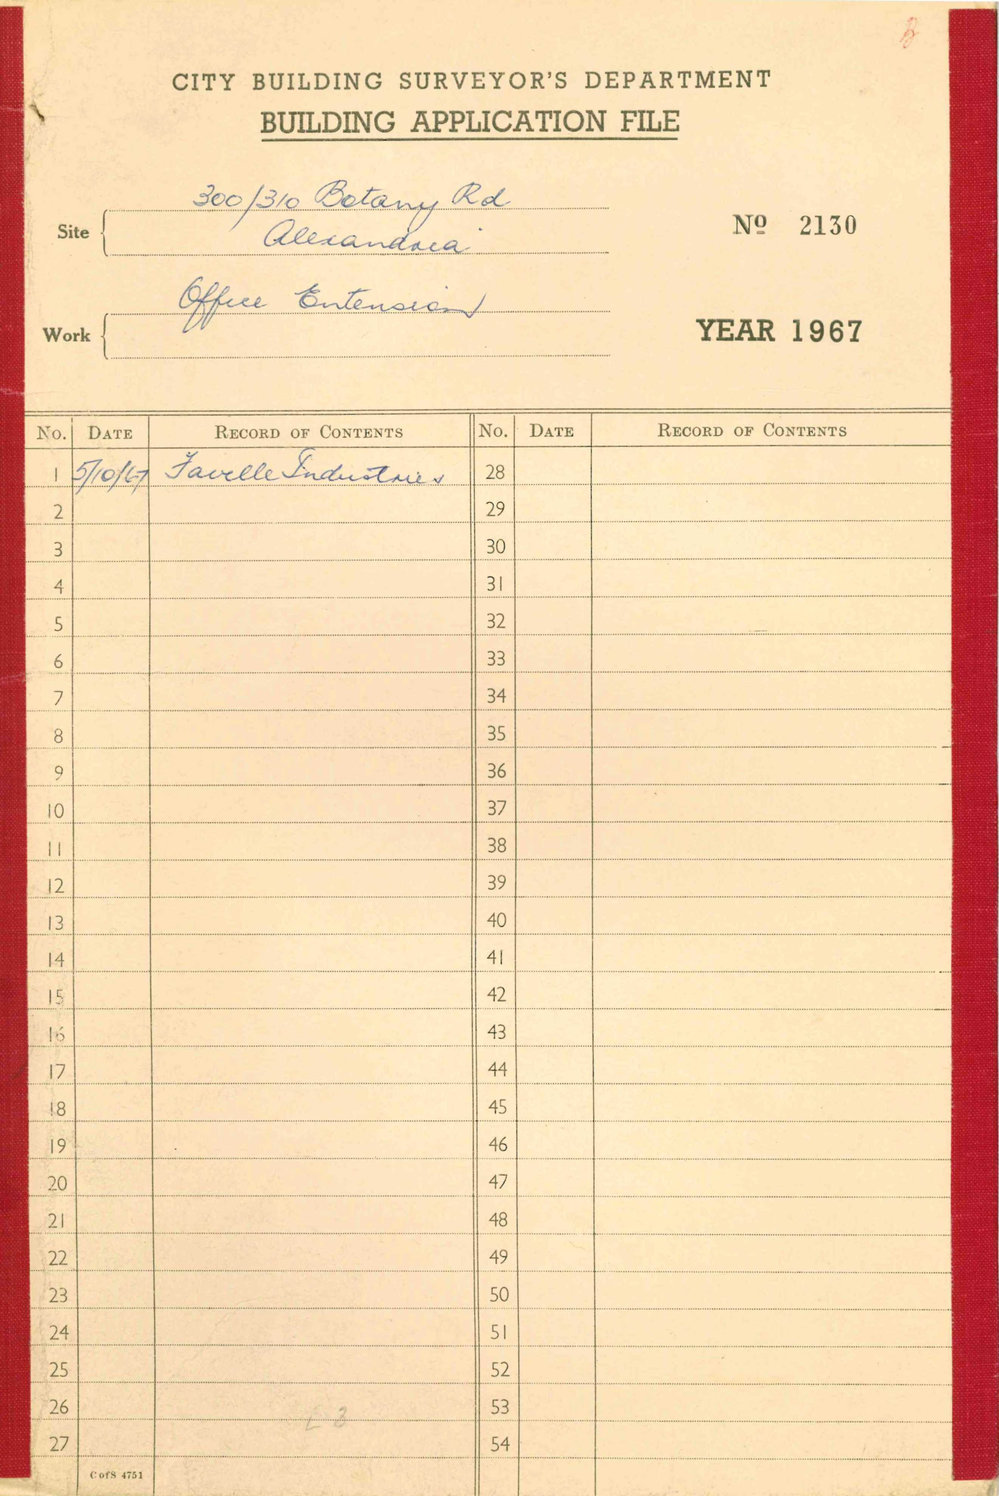 CITY BUILDING SURVEYOR'S DEPARTMENT
BUILDING APPLICATION FILE
Site
300/310 Botany Rd
Alexandria
No 2130
Work
Office Extension
YEAR 1967
No. DATE RECORD OF CONTENTS No. DATE RECORD OF CONTENTS
1 5/10/67 Favelle Industries 28
2 29
3 30
4 31
5 32
6 33
7 34
8 35
9 36
10 37
11 38
12 39
13 40
14 41
15 42
16 43
17 44
18 45
19 46
20 47
21 48
22 49
23 50
24 51
25 52
26 53
27 54
C of S 4751